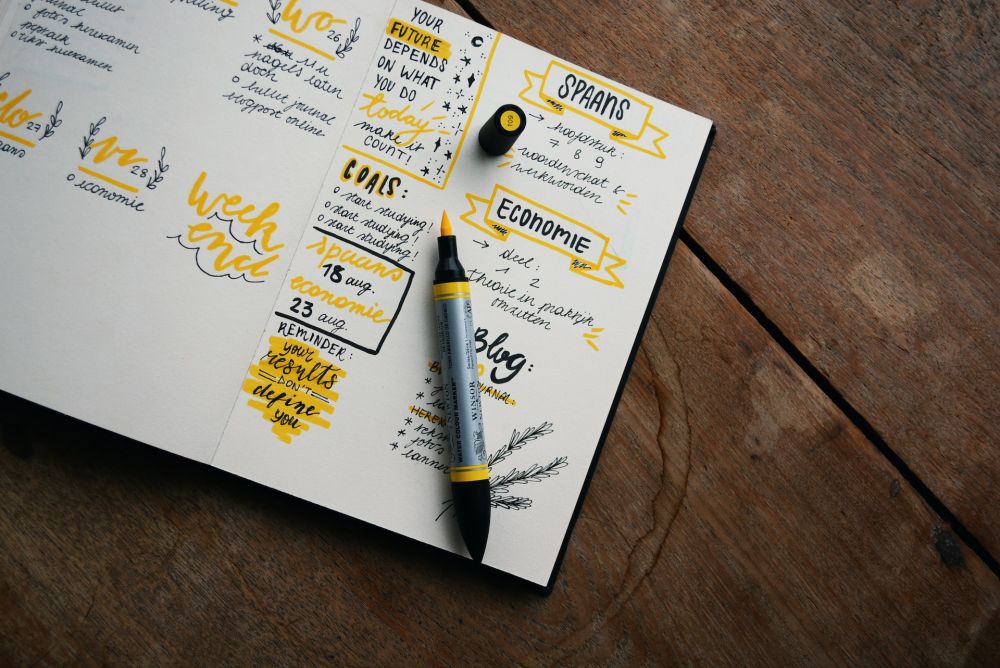 o foto's herexamen
herexamen
wo 26
* 11 u
nagels laten
doen
o bullet journal
blogpost online
do 27
vr 28
o economie
week
end
YOUR
FUTURE
DEPENDS
ON WHAT
YOU DO
today
make it
COUNT!
GOALS:
o start studying!
o start studying!
o start studying!
spaans
18 aug.
economie
23 aug.
REMINDER:
your
results
DON'T
define
you
SPAANS
→ hoofdstuk:
7 8 9
woordenschat &
werkwoorden
ECONOMIE
→ deel:
1 2
theorie in praktijk
omzetten
Blog:
JOURNAL:
*
HEREX
*
* foto's
* banner
109
WATER COLOUR MARKER
WINSOR